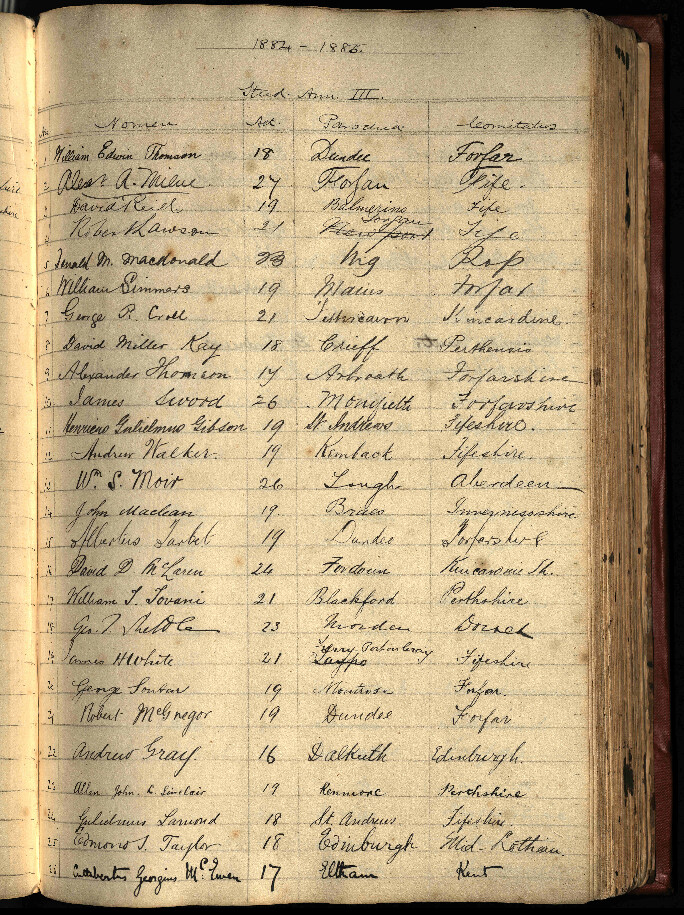 1884 - 1885
Stud. Ann. III.
Nomen Aet. Parochia Comitatus
William Edwin Thomson 18 Dundee Forfar
2 Alexr A. Milne 27 Forfar Fife.
3 David Reid 19 Balmerino Fife
4 Robert Lawson 21 Newport Forgan Fife
5 Donald M. Macdonald 23 Uig Ross
6 William Simmers 19 Mains Forfar
7 George R. Croll 21 Kincardine.
8 David Miller Kay 18 Crieff Perthensis
9 Alexander Thomson 17 Arbroath Forfarshire
10 James Swood 26 Monifieth Forfarshire
11 Henricus Gulielmus Gibson 19 St Andrews Fifeshire.
12 Andrew Walker. 19 Kemback Fifeshire.
13 Wm. S. Moir 26 Aberdeen
14 John Maclean 19. Braes Invernessshire
15 Albertus Tarbet 19 Dundee Forfarshire
16 David D. McLaren 24 Fordoun Kincardine Sh.
17 William T. Tovani 21 Blackford Perthshire
18 Geo. 23 Morden Dorset
19 James H White 21 Ferry-Port-on-Craig Fifeshire
20 George Soutar 19 Montrose Forfar.
21 Robert McGregor 19 Dundee Forfar
22 Andrew Gray. 16 Dalkeith Edinburgh.
23 Allen John. C. Sinclair 19 Kenmore Perthshire
24 Gulielmus Lamond 18 St. Andrews Fifeshire.
25 Edmond S. Taylor 18 Edinburgh Mid-Lothian.
26 Cuthbertus Georgius McEwen 17 Eltham Kent